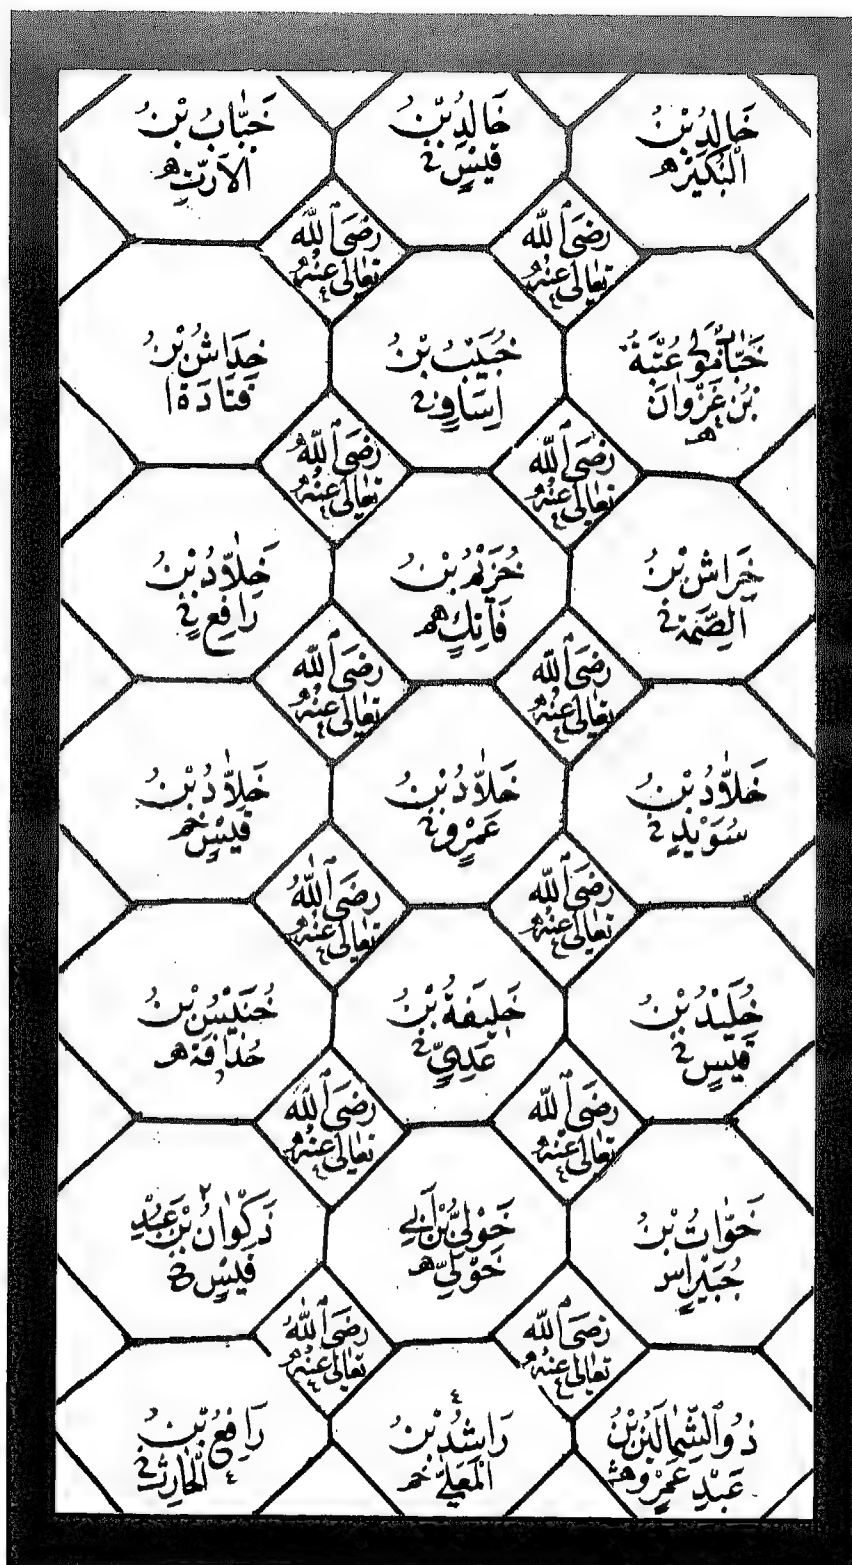 خَالِدُ بْنُ
الْبُكَيْرِ هـ
خَالِدُ بْنُ
قَيْسٍ خ
خَبَّابُ بْنُ
الْاَرَتِّ هـ
رَضِىَ اللّٰهُ
تَعَالٰى عَنْهُ
رَضِىَ اللّٰهُ
تَعَالٰى عَنْهُ
خَبَّابْ مَوْلٰى عُتْبَةَ
بْنِ غَزْوَانَ
هـ
خُبَيْبُ بْنُ
اِسَافٍ خ
خِدَاشُ بْنُ
قَتَادَةَ ا
رَضِىَ اللّٰهُ
تَعَالٰى عَنْهُ
رَضِىَ اللّٰهُ
تَعَالٰى عَنْهُ
خِرَاشُ بْنُ
الصِّمَّةِ خ
خُرَيْمُ بْنُ
فَاتِكٍ هـ
خَلَّادُ بْنُ
رَافِعٍ خ
رَضِىَ اللّٰهُ
تَعَالٰى عَنْهُ
رَضِىَ اللّٰهُ
تَعَالٰى عَنْهُ
خَلَّادُ بْنُ
سُوَيْدٍ خ
خَلَّادُ بْنُ
عَمْرٍو خ
خَلَّادُ بْنُ
قَيْسٍ خ
رَضِىَ اللّٰهُ
تَعَالٰى عَنْهُ
رَضِىَ اللّٰهُ
تَعَالٰى عَنْهُ
خُلَيْدُ بْنُ
قَيْسٍ خ
خَلِيفَةُ بْنُ
عَدِيٍّ خ
خُنَيْسُ بْنُ
حُذَافَةَ هـ
رَضِىَ اللّٰهُ
تَعَالٰى عَنْهُ
رَضِىَ اللّٰهُ
تَعَالٰى عَنْهُ
خَوَّاتُ بْنُ
جُبَيْرٍ اس
خَوْلِيُّ بْنُ اَبِي
خَوْلِيٍّ هـ
ذَكْوَانُ بْنُ عَبْدِ
قَيْسٍ خ
رَضِىَ اللّٰهُ
تَعَالٰى عَنْهُ
رَضِىَ اللّٰهُ
تَعَالٰى عَنْهُ
ذُو الشِّمَالَيْنِ بْنُ
عَبْدِ عَمْرٍو هـ
رَاشِدُ بْنُ
الْمُعَلّٰى خ
رَافِعُ بْنُ
الْحَارِثِ خ